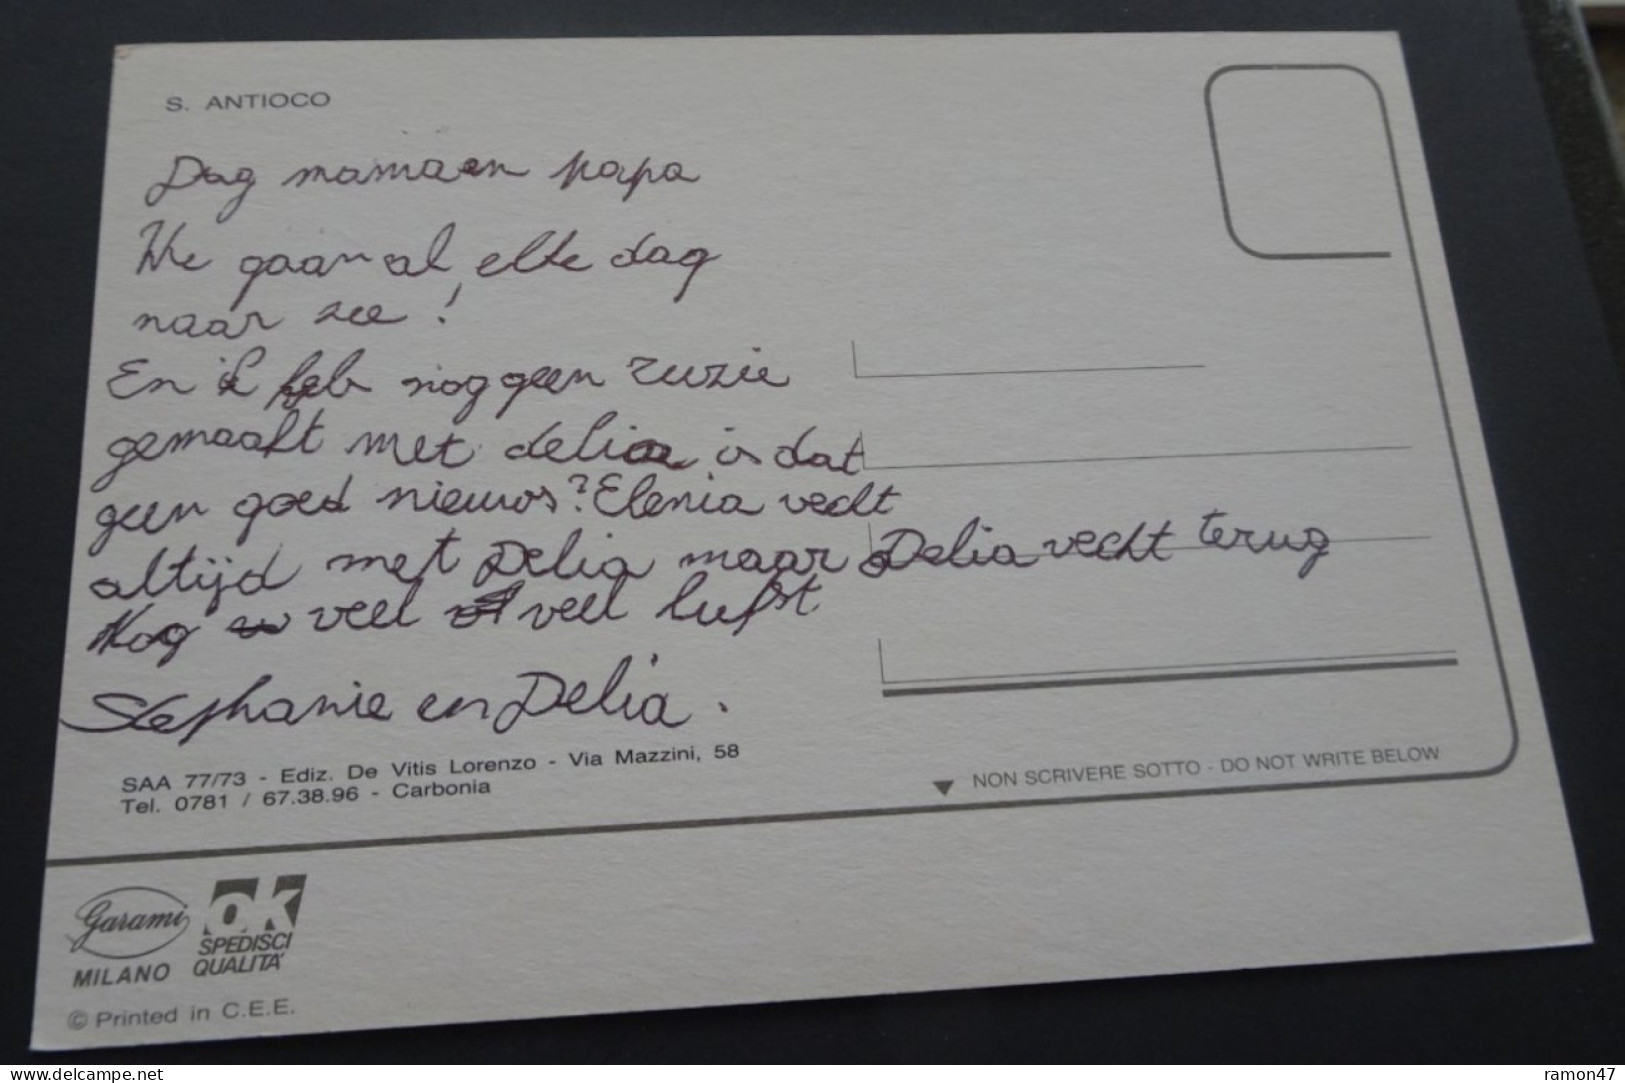 S. ANTIOCO
Dag mama en papa
We gaan al elke dag
naar zee !
En ik heb nog geen ruzie
gemaakt met delia is dat
geen goed nieuws? Elenia vecht
altijd met Delia maar Delia vecht terug
Nog veel veel liefst
Stephanie en Delia.
SAA 77/73 - Ediz. De Vitis Lorenzo - Via Mazzini, 58
Tel. 0781 / 67.38.96 - Carbonia
NON SCRIVERE SOTTO - DO NOT WRITE BELOW
Garami
MILANO
OK
SPEDISCI
QUALITA'
© Printed in C.E.E.
delcampe.net
ramon47